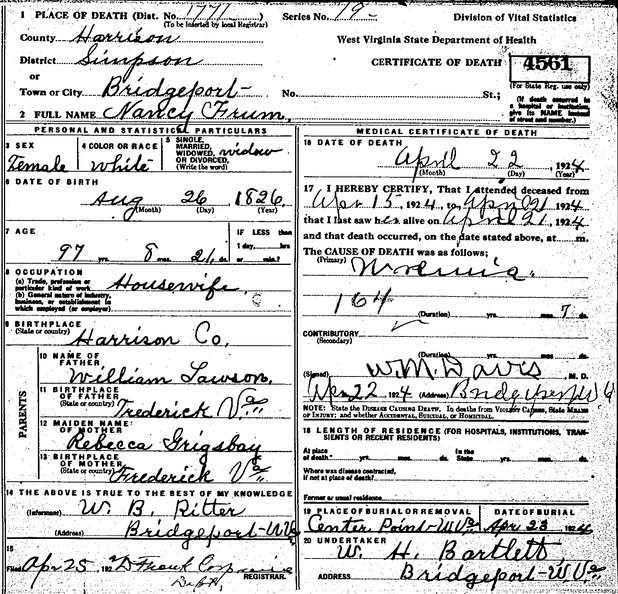 1 PLACE OF DEATH (Dist. No. 1771) Series No. 19- Division of Vital Statistics
(To be inserted by local Registrar)
County Harrison West Virginia State Department of Health
District Simpson CERTIFICATE OF DEATH 4561
or (For State Reg. use only)
Town or City Bridgeport- No. St.;
(If death occurred in a hospital or institution, give its NAME instead of street and number.)
2 FULL NAME Nancy Frum,
PERSONAL AND STATISTICAL PARTICULARS
3 SEX 4 COLOR OR RACE 5 SINGLE, MARRIED, WIDOWED, OR DIVORCED, (Write the word) widow
Female white
6 DATE OF BIRTH
Aug 26 1826
(Month) (Day) (Year)
7 AGE IF LESS than
1 day, hrs
97 yrs. 8 mos. 21 ds. or min.?
8 OCCUPATION
(a) Trade, profession or particular kind of work Housewife
(b) General nature of industry, business, or establishment in which employed (or employer)
9 BIRTHPLACE
(State or country) Harrison Co.
PARENTS
10 NAME OF FATHER
William Lawson,
11 BIRTHPLACE OF FATHER
(State or country) Frederick Va
12 MAIDEN NAME OF MOTHER
Rebecca Grigsbay
13 BIRTHPLACE OF MOTHER
(State or country) Frederick Va
14 THE ABOVE IS TRUE TO THE BEST OF MY KNOWLEDGE
(Informant) W. B. Ritter
(Address) Bridgeport-WVa
15
Filed Apr 25 192 D Frank
REGISTRAR.
MEDICAL CERTIFICATE OF DEATH
16 DATE OF DEATH
April 22, 1924
(Month) (Day) (Year)
17 I HEREBY CERTIFY, That I attended deceased from
Apr 15 1924, to April 21 1924
that I last saw her alive on April 21, 1924
and that death occurred, on the date stated above, at m.
The CAUSE OF DEATH was as follows;
(Primary) Uremia.
164
(Duration) yrs. mos. 7 ds.
CONTRIBUTORY
(Secondary)
(Duration) yrs. mos. ds.
(Signed) W.M. Davis M. D.
22 1924 (Address) Bridgeport
NOTE: State the DISEASE CAUSING DEATH. In deaths from VIOLENT CAUSES, State MEANS OF INJURY; and whether ACCIDENTAL, SUICIDAL, OR HOMICIDAL.
18 LENGTH OF RESIDENCE (FOR HOSPITALS, INSTITUTIONS, TRANSIENTS OR RECENT RESIDENTS)
At place of death yrs. mos. ds. In the State yrs. mos. ds.
Where was disease contracted, if not at place of death?
Former or usual residence
19 PLACE OF BURIAL OR REMOVAL DATE OF BURIAL
Center Point-WVa Apr 23 1924
20 UNDERTAKER
W. H. Bartlett,
ADDRESS Bridgeport-W.Va